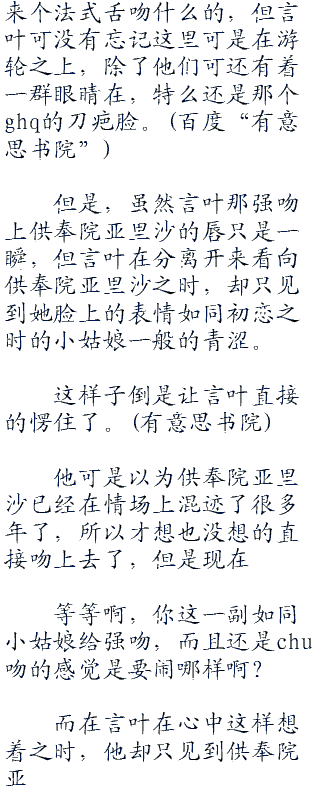 来个法式舌吻什么的，但言
叶可没有忘记这里可是在游
轮之上，除了他们可还有着
一群眼睛在，特么还是那个
ghq的刀疤脸。(百度“有意
思书院”)
但是，虽然言叶那强吻
上供奉院亚里沙的唇只是一
瞬，但言叶在分离开来看向
供奉院亚里沙之时，却只见
到她脸上的表情如同初恋之
时的小姑娘一般的青涩。
这样子倒是让言叶直接
的愣住了。(有意思书院)
他可是以为供奉院亚里
沙已经在情场上混迹了很多
年了，所以才想也没想的直
接吻上去了，但是现在
等等啊，你这一副如同
小姑娘给强吻，而且还是chu
吻的感觉是要闹哪样啊?
而在言叶在心中这样想
着之时，他却只见到供奉院
亚